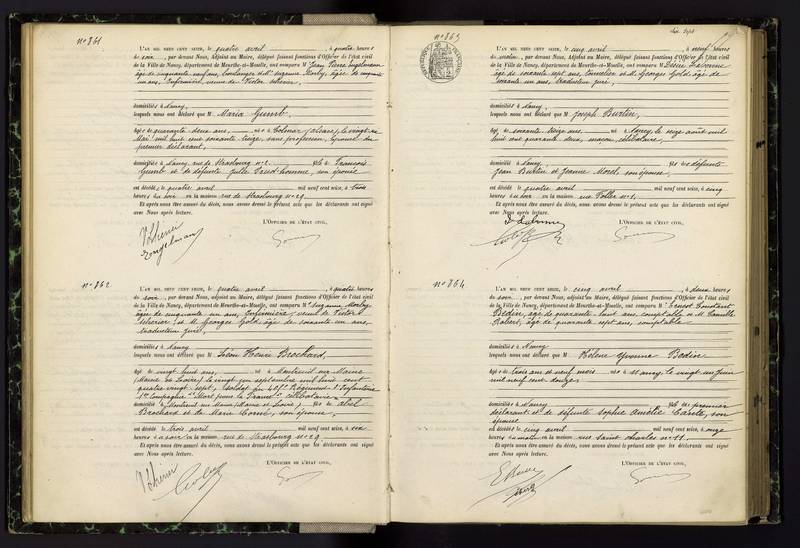 n° 861
L'AN MIL NEUF CENT SEIZE, le quatre avril, à quatre heures
du soir, par devant Nous, Adjoint au Maire, délégué faisant fonctions d'Officier de l'état civil
de la Ville de Nancy, département de Meurthe-et-Moselle, ont comparu M. Jean Pierre Engelmann
âgé de cinquante neuf ans, et Suzanne Morley, âgée de cinquante
un ans, Infirmière, veuve de Victor
domiciliés à Nancy,
lesquels nous ont déclaré que Maria Gumb,
âgée de quarante deux ans, née à Colmar (Alsace), le vingt un
Mai mil huit cent soixante treize, sans profession, épouse du
premier déclarant,
domiciliée à Nancy, rue de Strasbourg n° 2, fille de François
Gumb et de défunte Julie Prud'homme, son épouse,
est décédée le quatre avril mil neuf cent seize, à trois
heures du soir en la maison rue de Strasbourg n° 29
Et après nous être assuré du décès, nous avons dressé le présent acte que les déclarants ont signé
avec Nous après lecture.
L'OFFICIER DE L'ÉTAT CIVIL,
Engelmann
n° 862
L'AN MIL NEUF CENT SEIZE, le quatre avril, à quatre heures
du soir, par devant Nous, adjoint au Maire, délégué faisant fonctions d'Officier de l'état civil
de la Ville de Nancy, département de Meurthe-et-Moselle, ont comparu M. Suzanne Morley
âgée de cinquante un ans, Infirmière, veuve de Victor
et M. Georges Gold, âgé de soixante un ans,
traducteur juré,
domiciliés à Nancy
lesquels nous ont déclaré que M. Léon Henri Brochard,
âgé de vingt huit ans, né à Montreuil sur Maine
(Maine et Loire) le vingt juin septembre mil huit cent
quatre vingt sept, soldat au Régiment d'Infanterie
1re Compagnie "Mort pour la France" célibataire,
domicilié à Montreuil sur Maine (Maine et Loire) fils de Abel
Brochard et de Marie Comté, son épouse,
est décédé le trois avril mil neuf cent seize, à six
heures du soir en la maison rue de Strasbourg n° 29
Et après nous être assuré du décès, nous avons dressé le présent acte que les déclarants ont signé
avec Nous après lecture.
L'OFFICIER DE L'ÉTAT CIVIL,
n° 863
L'AN MIL NEUF CENT SEIZE, le cinq avril, à neuf heures
du matin, par devant Nous, Adjoint au Maire, délégué faisant fonctions d'Officier de l'état civil
de la Ville de Nancy, département de Meurthe-et-Moselle, ont comparu M. Désiré
âgé de soixante sept ans, et M. Georges Gold âgé de
soixante un ans, traducteur juré,
domiciliés à Nancy,
lesquels nous ont déclaré que M. Joseph Burtin,
âgé de soixante treize ans, né à Nancy, le seize août mil
huit cent quarante deux, maçon, célibataire,
domicilié à Nancy, fils des défunts
Jean Burtin et Jeanne Morel, son épouse,
est décédé le quatre avril mil neuf cent seize, à cinq
heures du soir en la maison rue n° 1,
Et après nous être assuré du décès, nous avons dressé le présent acte que les déclarants ont signé
avec Nous après lecture.
L'OFFICIER DE L'ÉTAT CIVIL,
n° 864
L'AN MIL NEUF CENT SEIZE, le cinq avril, à deux heures
du soir, par devant Nous, adjoint au Maire, délégué faisant fonctions d'Officier de l'état civil
de la Ville de Nancy, département de Meurthe-et-Moselle, ont comparu M. Ernest Constant
Bedin, âgé de quarante huit ans, comptable et M. Camille
Robert, âgé de quarante sept ans, comptable
domiciliés à Nancy
lesquels nous ont déclaré que M. Hélène Yvonne Bedin
âgée de trois ans et neuf mois née à Nancy, le vingt un Juin
mil neuf cent douze,
domiciliée à Nancy fille du premier
déclarant et de défunte Sophie Amélie son
épouse
est décédée le cinq avril mil neuf cent seize, à onze
heures du matin en la maison rue Saint Charles n° 11,
Et après nous être assuré du décès, nous avons dressé le présent acte que les déclarants ont signé
avec Nous après lecture.
L'OFFICIER DE L'ÉTAT CIVIL,